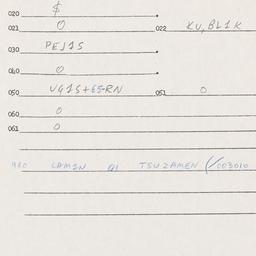 020 $
021 0 022 KU, BL1K
030 PEJ1S
040 0
050 VG1S+ES-RN 051 0
060 0
061 0
980 LAMIN Q1 TSUZAMEN (/003010